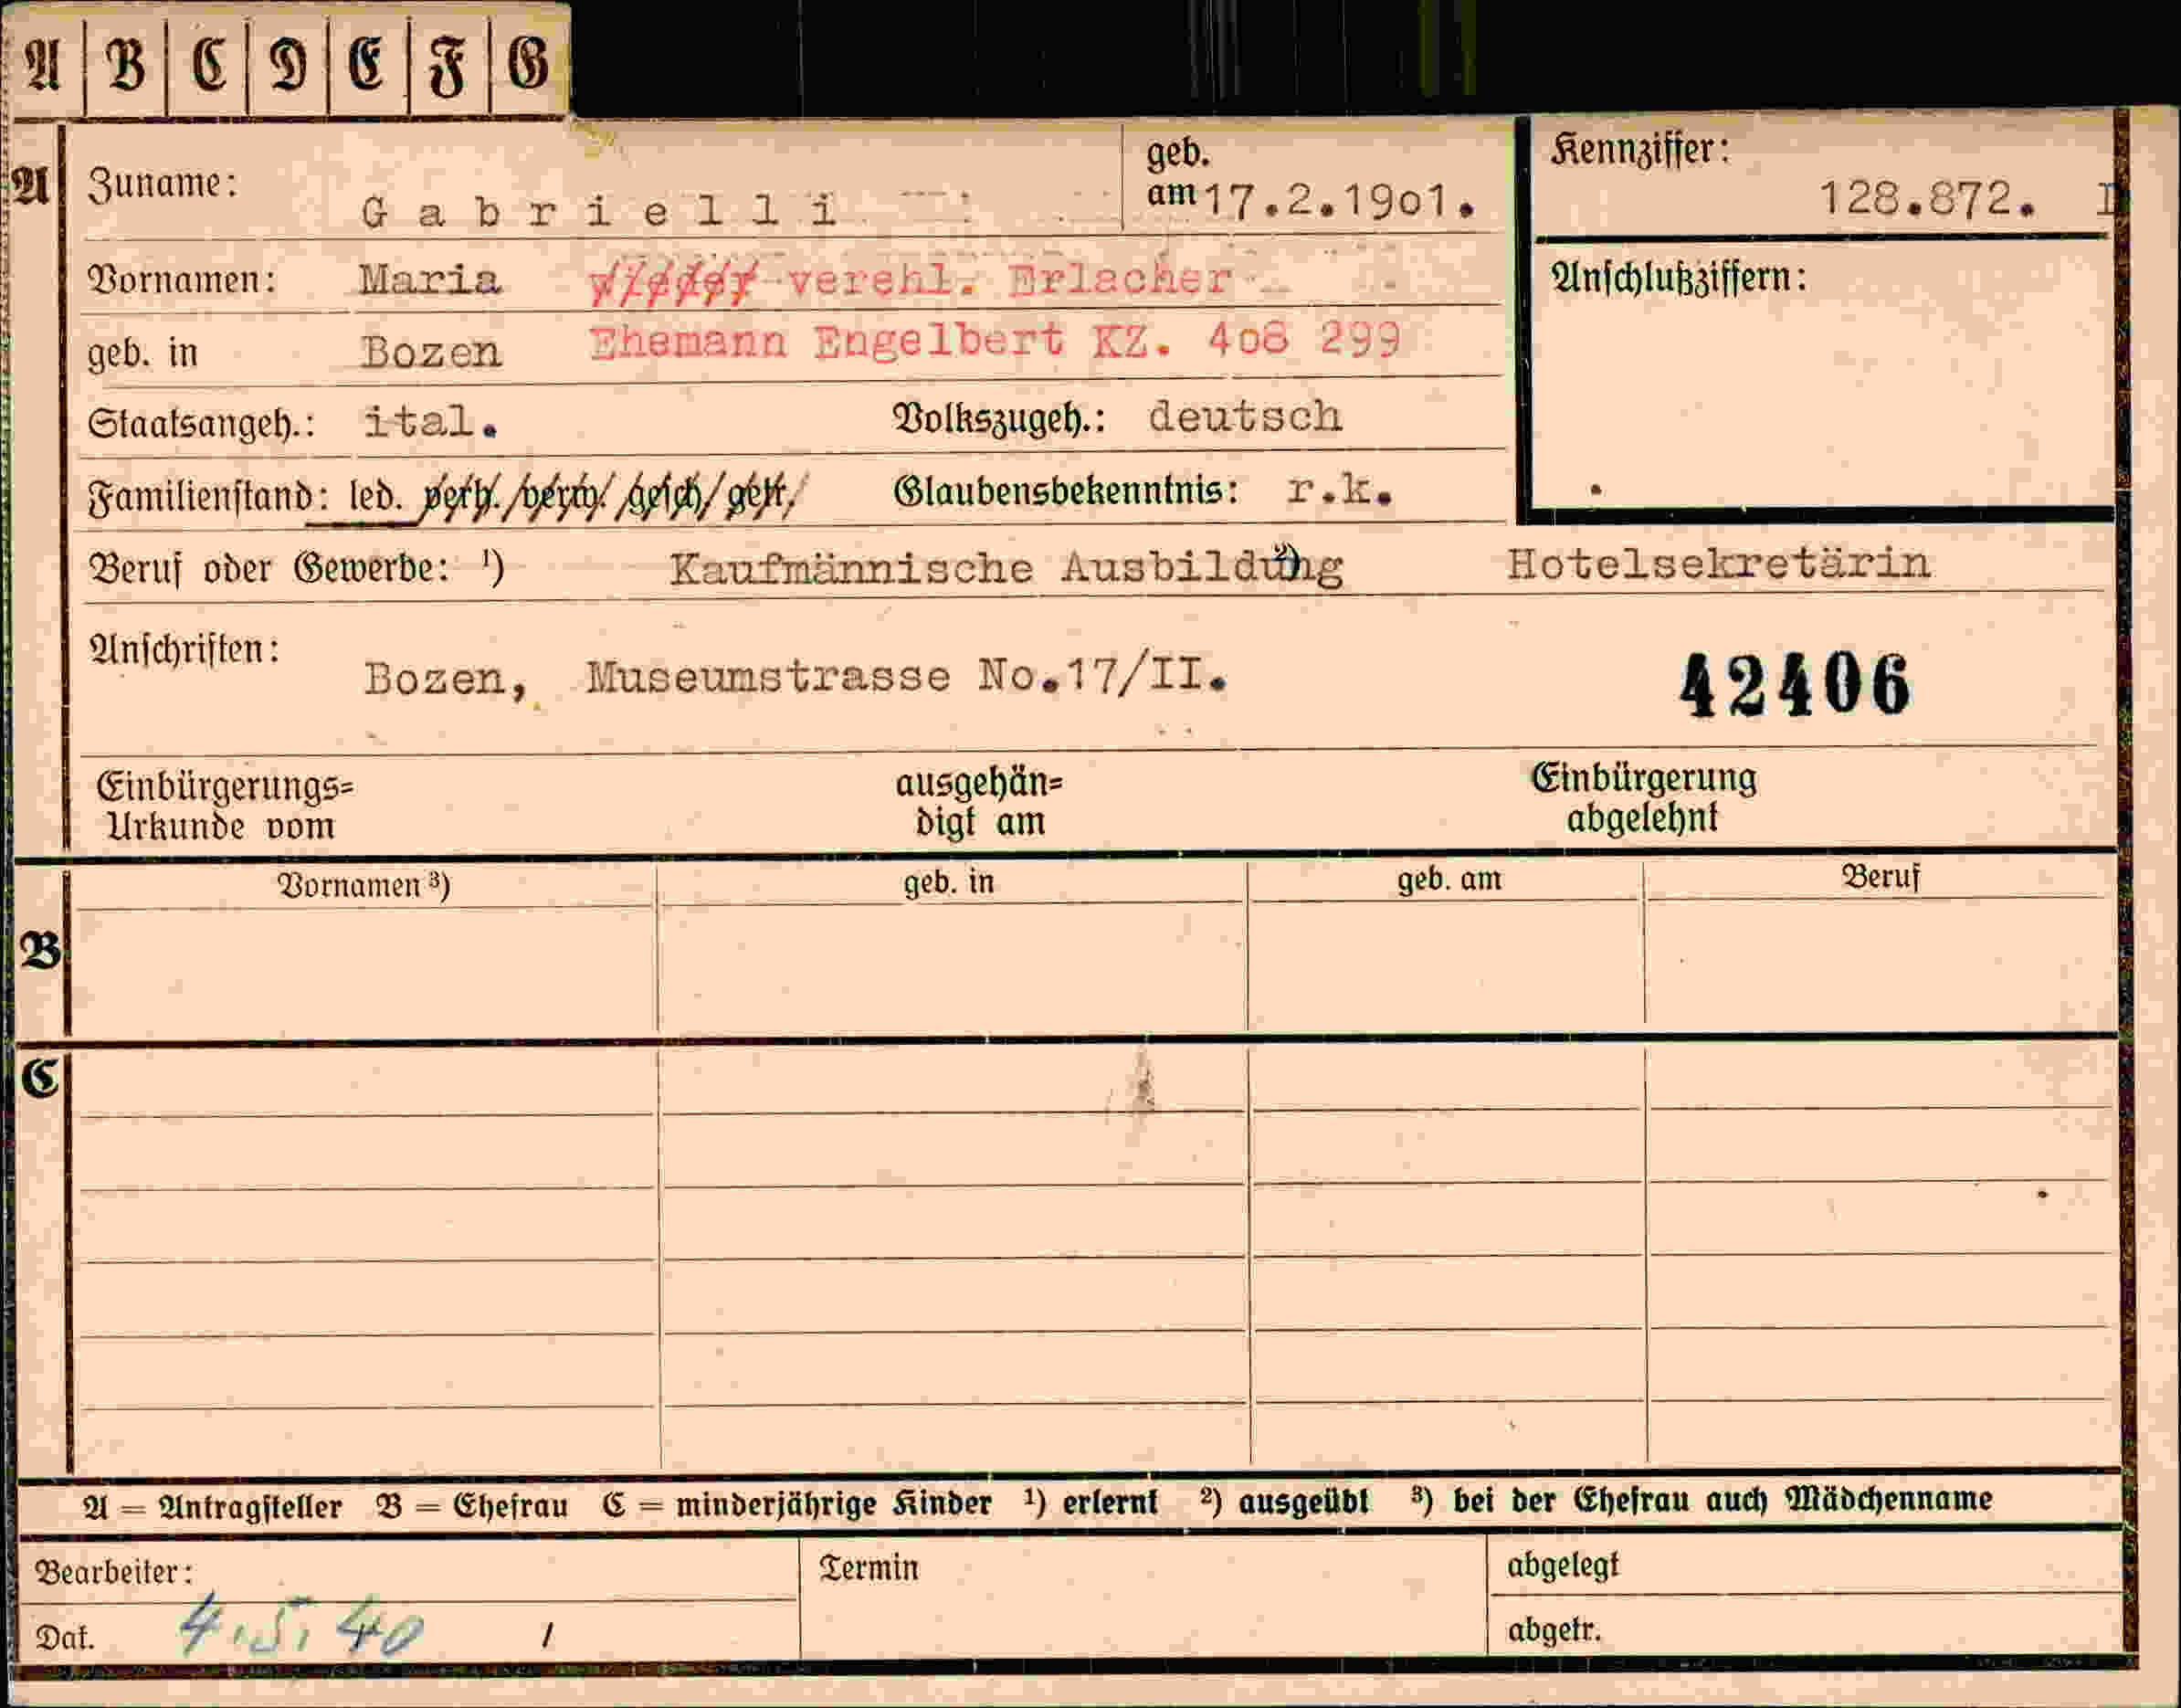 A B C D E F G
A
Zuname: Gabrielli
geb. am 17.2.1901.
Kennziffer: 128.872. I
Vornamen: Maria verehl. Erlacher
Anschlußziffern:
geb. in Bozen Ehemann Engelbert KZ. 408 299
Staatsangeh.: ital. Volkszugeh.: deutsch
Familienstand: led. verh./verw./gesch/getr. Glaubensbekenntnis: r.k.
Beruf oder Gewerbe: ¹) Kaufmännische Ausbildung ²) Hotelsekretärin
Anschriften: Bozen, Museumstrasse No.17/II.
42406
Einbürgerungs=
Urkunde vom
ausgehän=
digt am
Einbürgerung
abgelehnt
B
Vornamen ³) geb. in geb. am Beruf
C
A = Antragsteller B = Ehefrau C = minderjährige Kinder ¹) erlernt ²) ausgeübt ³) bei der Ehefrau auch Mädchenname
Bearbeiter: Termin abgelegt
Dat. 4.5.40 / abgetr.